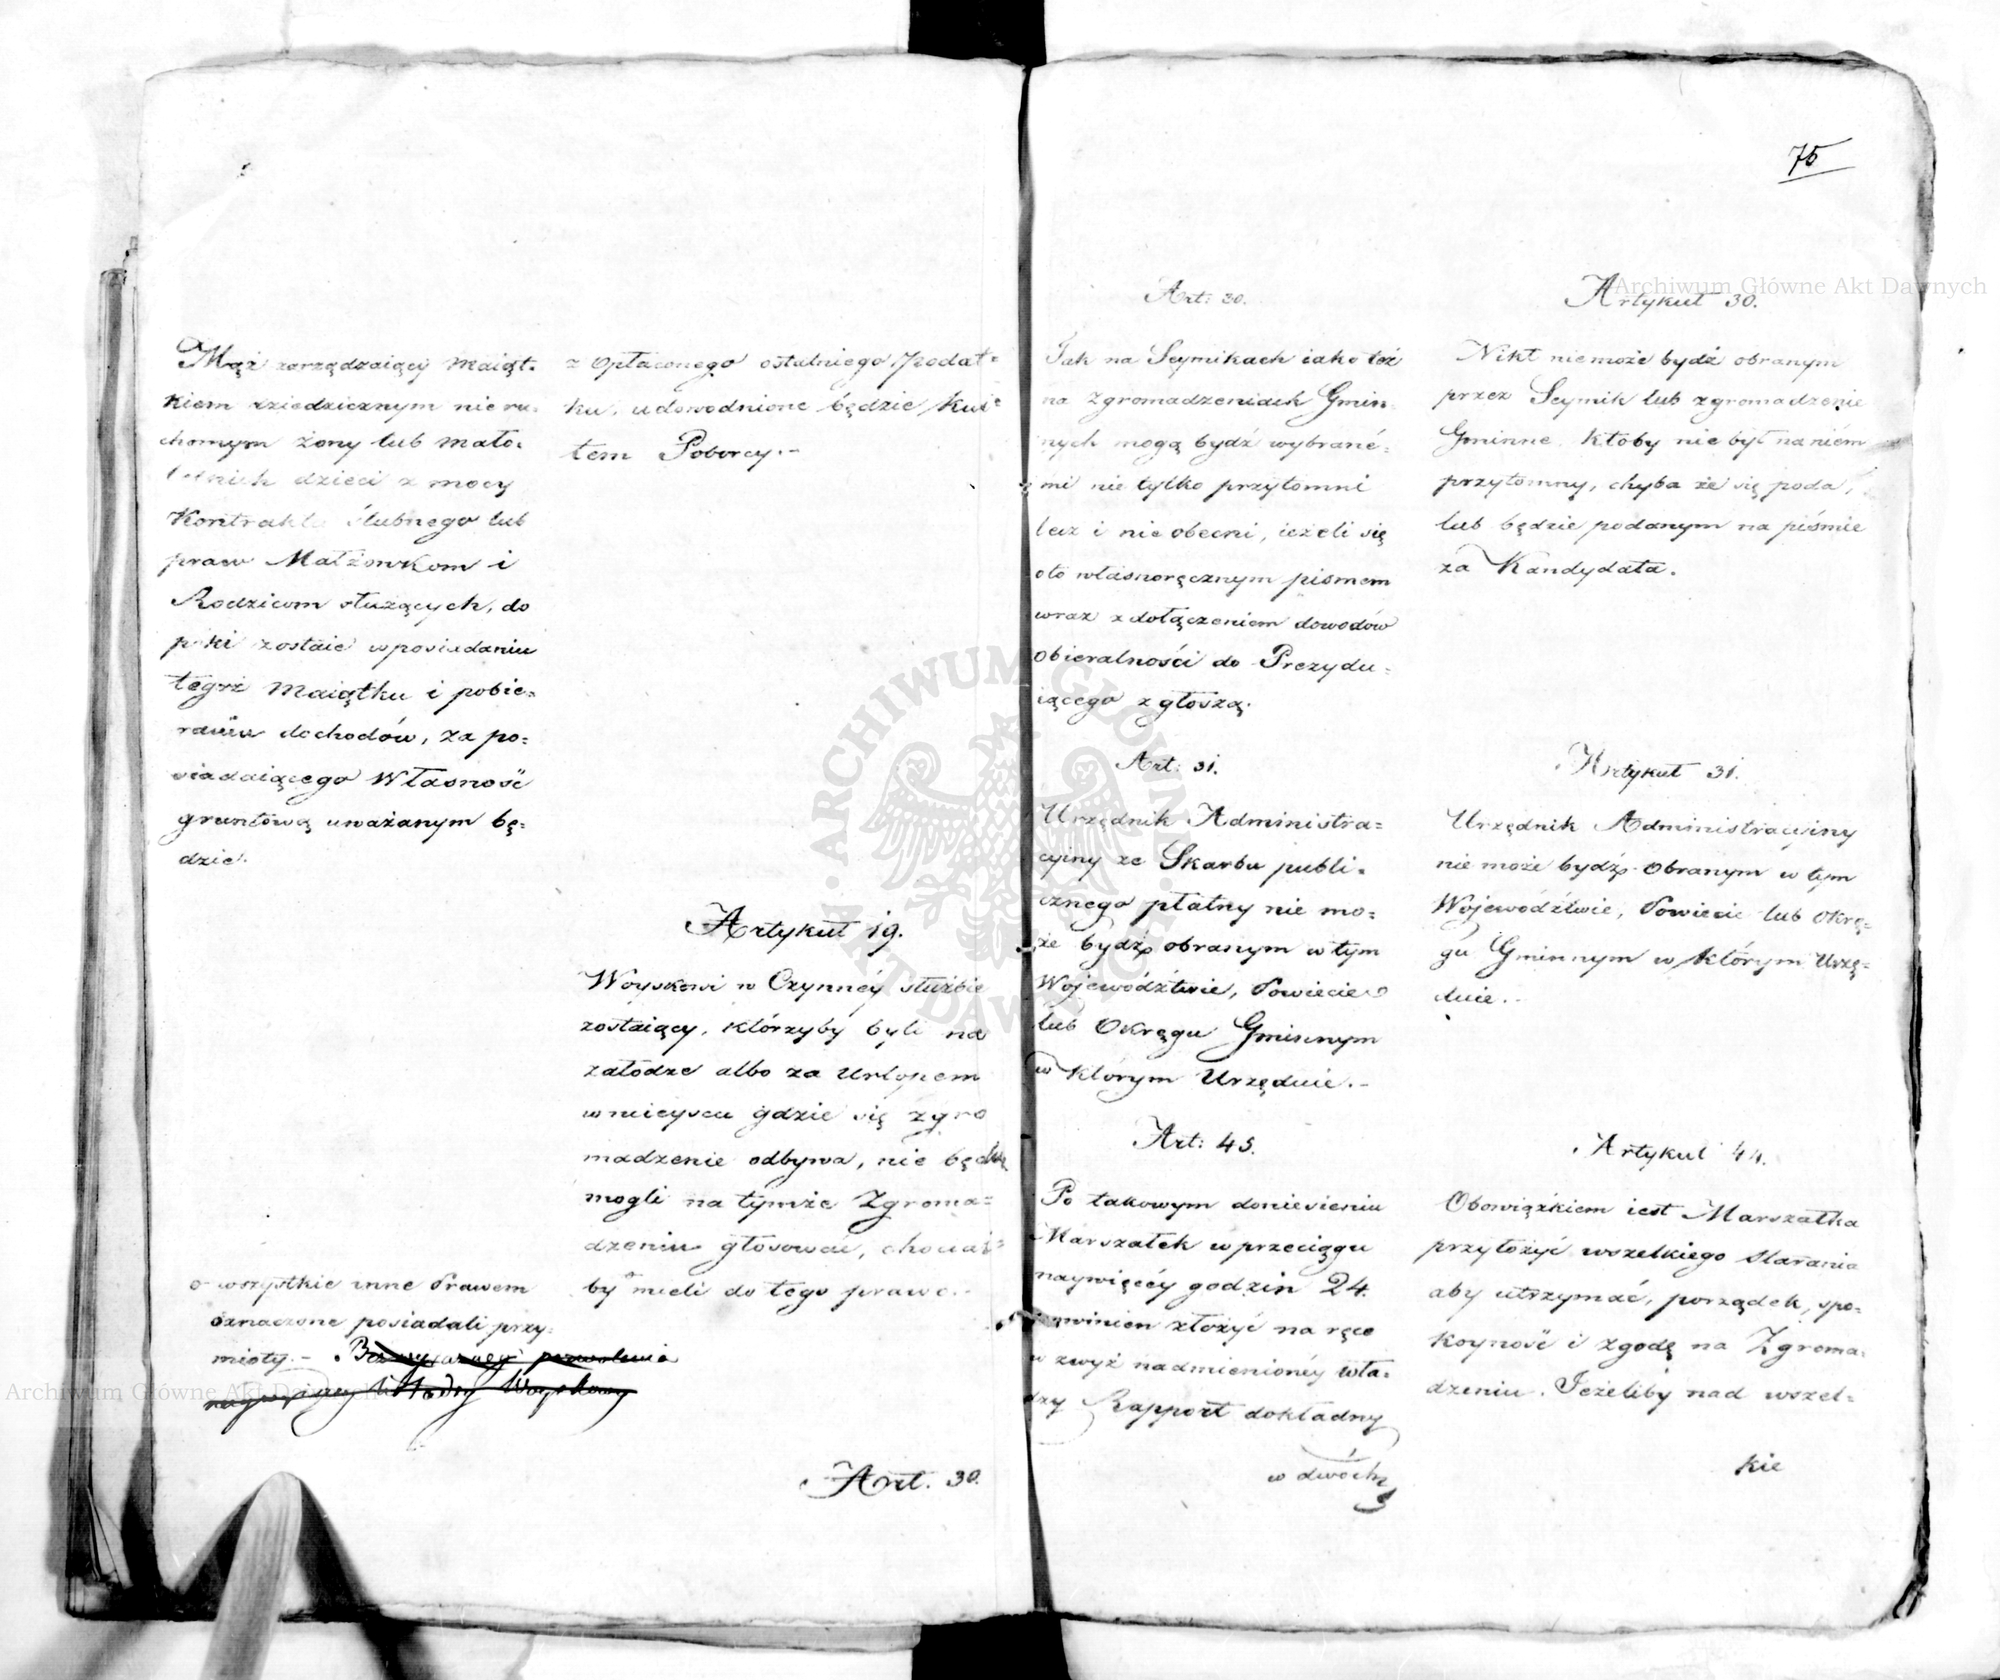 Mąż zarządzaiący Maiąt-
kiem dziedzicznym nieru-
chomym żony lub mało-
letnich dzieci z mocy
Kontraktu ślubnego lub
praw Małżonkom i
Rodzicom służących, do
póki zostaie w posiadaniu
tegoż Maiątku i pobie-
raniu dochodów, za po-
siadaiącego Własność
gruntową uważanym bę-
dzie.
o wszystkie inne Prawem
oznaczone posiadali przy-
mioty. - Bez wyraźnego pozwolenia
naywyższey Władzy Woyskowey
z opłaconego ostatniego podat-
ku, udowodnione będzie kwi-
tem Poborcy. -
Artykuł 19.
Woyskowi w Czynnéy służbie
zostaiący, którzyby byli na
załodze albo za Urlopem
w mieyscu gdzie się zgro
madzenie odbywa, nie będą
mogli na tymże Zgroma-
dzeniu głosować, chociaż-
by mieli do tego prawo. -
Art. 30.
75
Art: 30.
Jak na Seymikach iako też
na zgromadzeniach Gmin-
nych mogą bydź wybrané-
mi nie tylko przytomni
lecz i nie obecni, ieżeli się
oto własnoręcznym pismem
wraz z dołączeniem dowodów
obieralności do Prezydu-
iącego zgłoszą.
Art: 31.
Urzędnik Administra-
cyiny ze Skarbu publi-
cznego płatny nie mo-
że bydź obranym w tym
Województwie, Powiecie
lub Okręgu Gminnym
w którym Urzęduie. -
Art: 45.
Po takowym doniesieniu
Marszałek w przeciągu
naywięcéy godzin 24.
powinien złożyć na ręce
w zwyż nadmienionéy wła-
dzy Rapport dokładny
w dwóch
Artykuł 30.
Nikt nie może bydź obranym
przez Seymik lub zgromadzenie
Gminne, ktoby nie był na niém
przytomny, chyba że się poda,
lub będzie podanym na piśmie
za Kandydata.
Artykuł 31.
Urzędnik Administracyiny
nie może bydź obranym w tym
Województwie, Powiecie lub Okrę-
gu Gminnym w którym Urzę-
duie. -
Artykuł 44.
Obowiązkiem iest Marszałka
przyłożyć wszelkiego starania
aby utrzymać, porządek, spo-
koyność i zgodę na Zgroma-
dzeniu. Jeżeliby nad wszel-
kie
Archiwum Główne Akt Dawnych
Archiwum Główne Akt Dawnych
ARCHIWUM GŁÓWNE AKT DAWNYCH